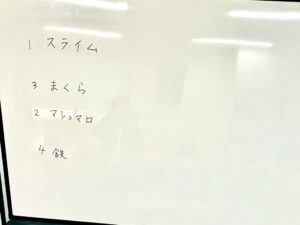 1 スライム
3 まくら
2 マシュマロ
4 鉄